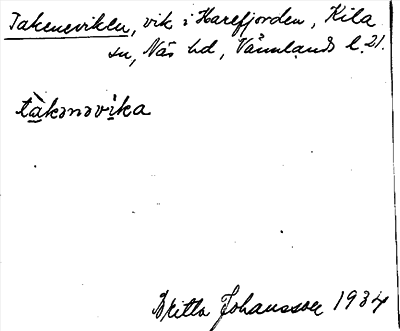 Takeneviken, vik i Harefjorden, Kila
sn, Näs hd, Värmlands l. 21.
tàkənəvìka
Britta Johansson 1934